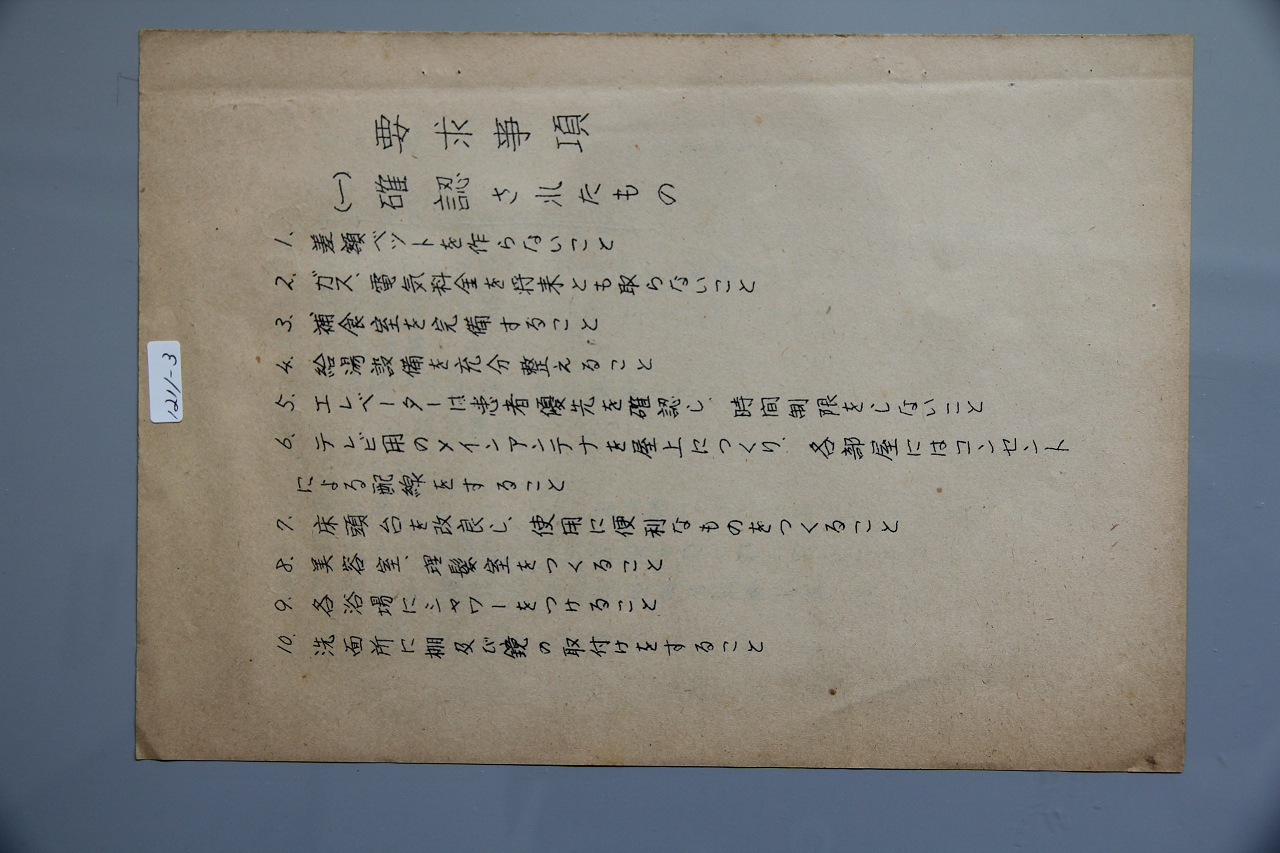 要求事項
(一) 確認されたもの
1. 差額ベットを作らないこと
2. ガス、電気料金を将来とも取らないこと
3. 補食室を完備すること
4. 給湯設備を充分整えること
5. エレベーターは患者優先を確認し、時間制限をしないこと
6. テレビ用のメインアンテナを屋上につくり、各部屋にはコンセント
による配線をすること
7. 床頭台を改良し、使用に便利なものをつくること
8. 美容室、理髪室をつくること
9. 各浴場にシャワーをつけること
10. 洗面所に棚及び鏡の取付けをすること
1211-3